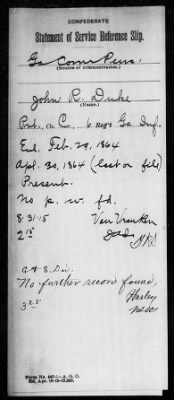 CONFEDERATE
Statement of Service Reference Slip.
Ga Com Pens.
(Source of communication.)
John R. Duke
(Name.)
Pvt., Co. C, 6 regt Ga Inf.
Enl. Feb. 29, 1864
Apr. 30, 1864 (last on file)
Present.
No p. w. fd.
8-31-15 Van Vranken
2 15
C. & E. Div.
No further record found,
Harley
3 25
Form No.